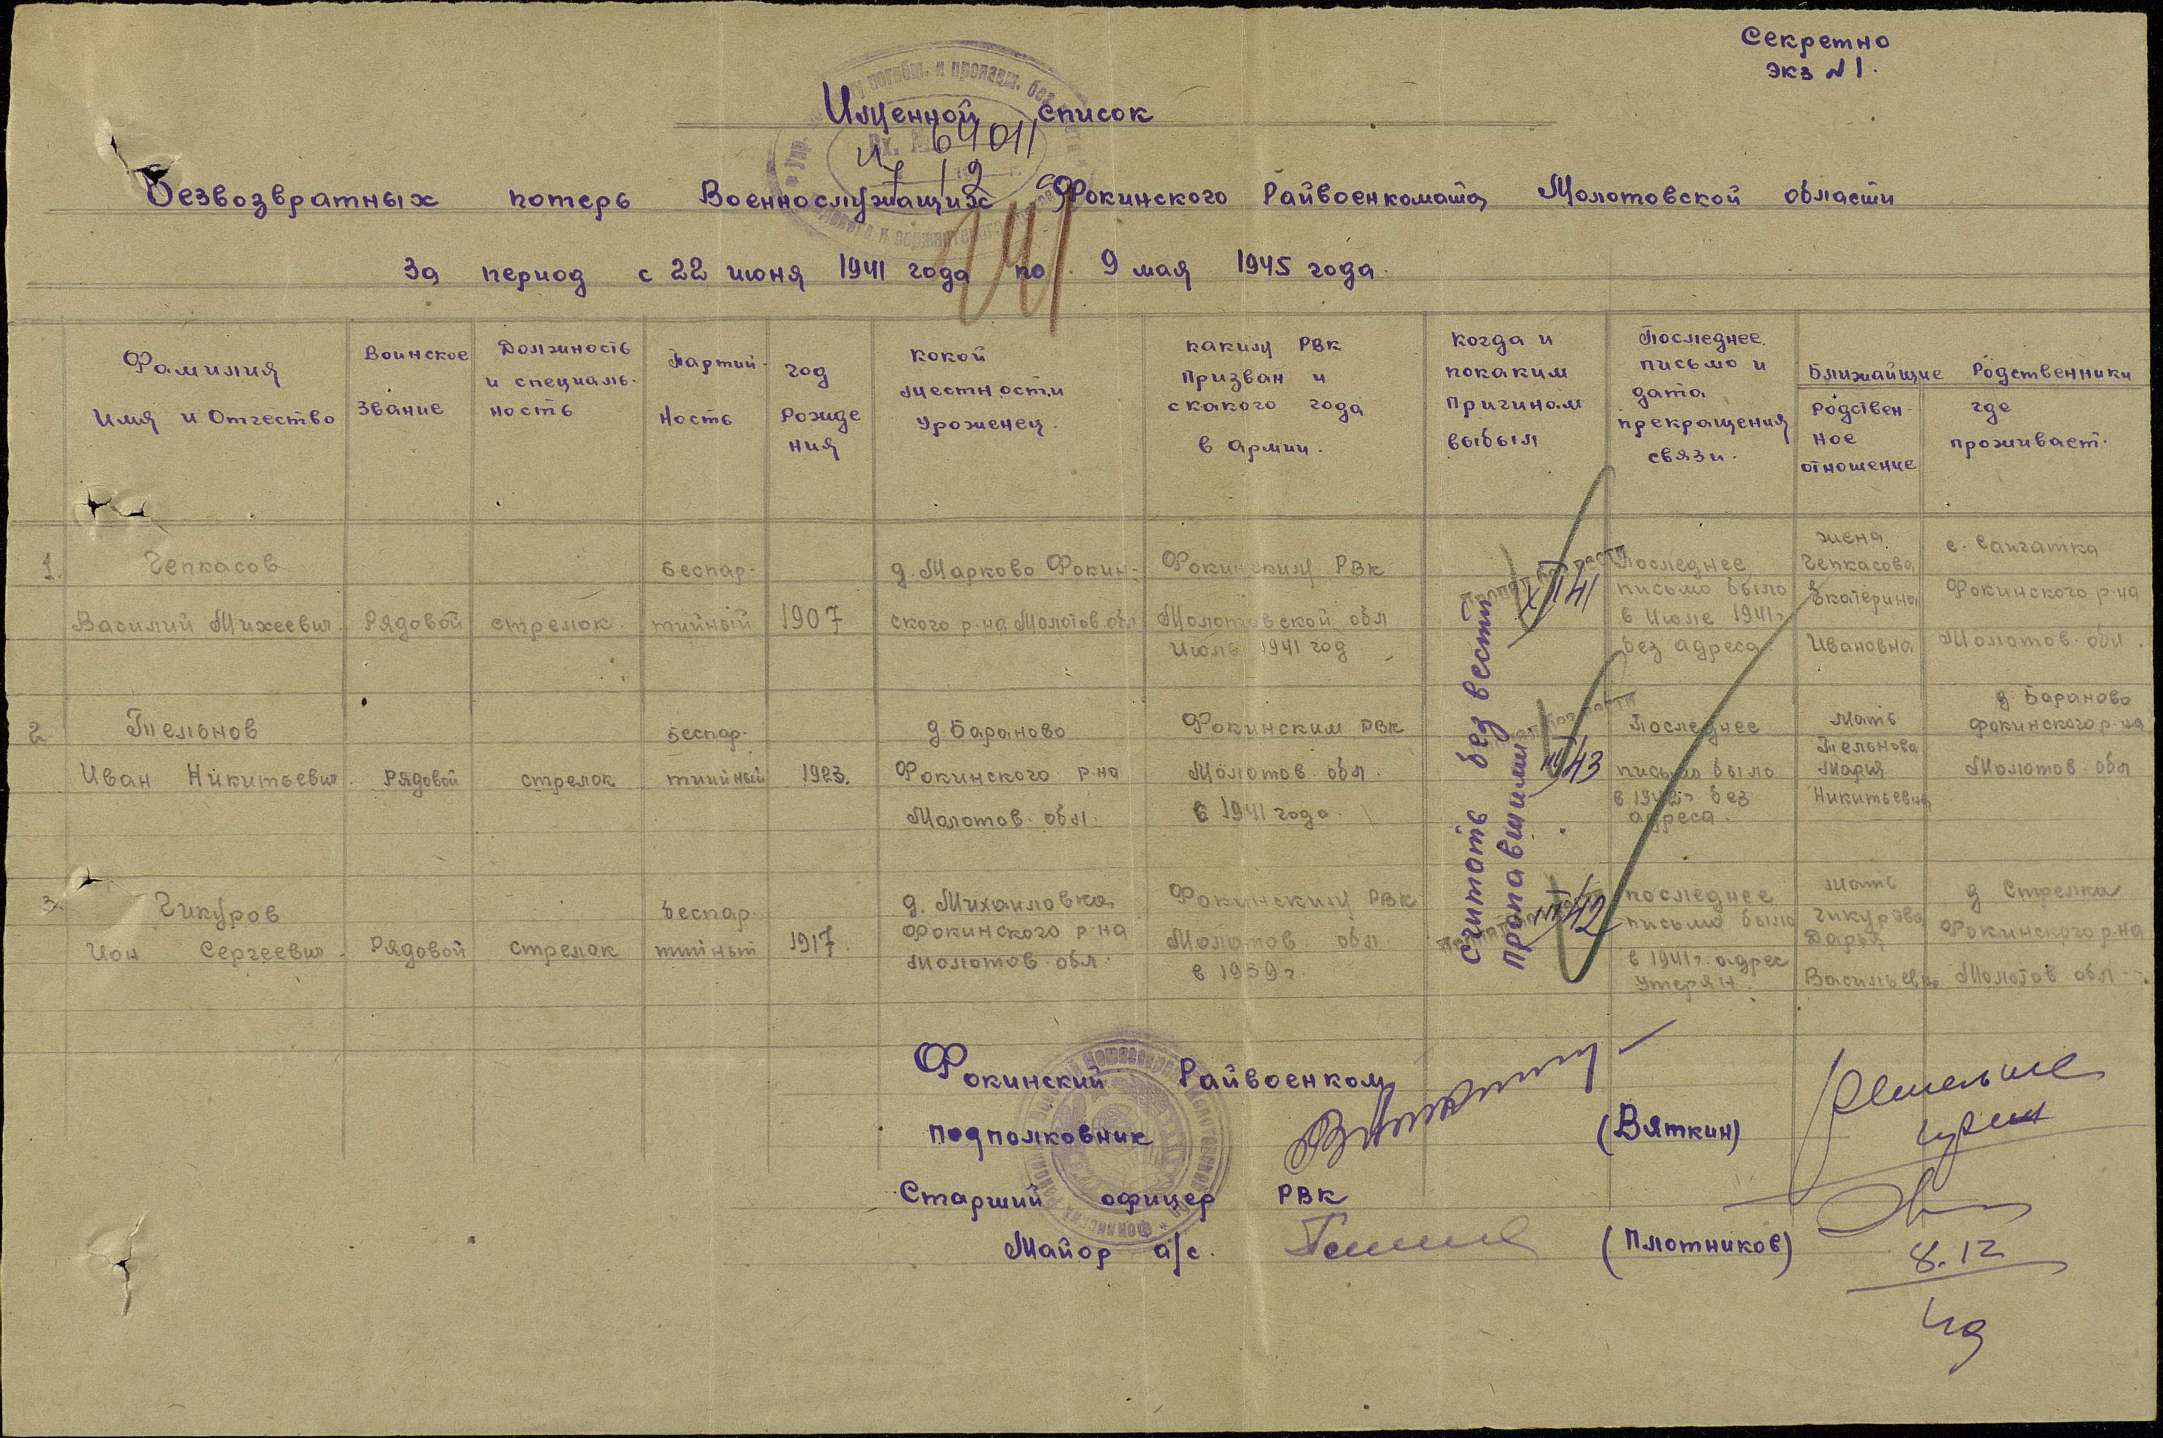 Секретно
Экз №1.
Именной список
64011
Безвозвратных потерь Военнослужащих Фокинского Райвоенкомата Молотовской области
За период с 22 июня 1941 года по 9 мая 1945 года.
Фамилия
Имя и Отчество
Воинское
Звание
Должность
и специаль-
ность
Партий-
ность
год
Рожде
ния
какой
местности
Уроженец.
каким РВК
Призван и
с какого года
в армии.
когда и
по каким
причинам
выбыл
Последнее
письмо и
дата
прекращения
связи.
Ближайщие Родственники
Родствен-
ное
отношение
где
проживает.
1.
Чепкасов
Василий Михеевич.
Рядовой
стрелок
беспар-
тийный
1907
д. Марково Фокин-
ского р-на Молотов. обл
Фокинским РВК
Молотовской обл
Июль 1941 год
XII 41
Последнее
письмо было
в Июле 1941г
без адреса
жена
Чепкасова
Екатерина
Ивановна
с. Сайгатка
Фокинского р-на
Молотов. обл.
2
Тельнов
Иван Никитьевич.
Рядовой
стрелок
беспар-
тийный
1923.
д Бараново
Фокинского р-на
Молотов. обл.
Фокинским РВК
Молотов. обл.
в 1941 года.
43
Последнее
письмо было
в 1942г без
адреса.
Мать
Тельнова
Мария
Никитьевна
д Бараново
Фокинского р-на
Молотов. обл
3.
Чикуров
Ион Сергеевич.
Рядовой
стрелок
беспар-
тийный
1917.
д. Михайловка
Фокинского р-на
Молотов. обл.
Фокинским РВК
Молотов. обл
в 1939г.
42
последнее
письмо было
в 1941г. адрес
утерян.
мать
Чикурова
Дарья
Васильевна
д Стрелка
Фокинского р-на
Молотов обл.
считать без вести
пропавшими
Фокинский Райвоенком
подполковник
(Вяткин)
Старший офицер РВК
Майор а/с.
(Плотников)
8.12